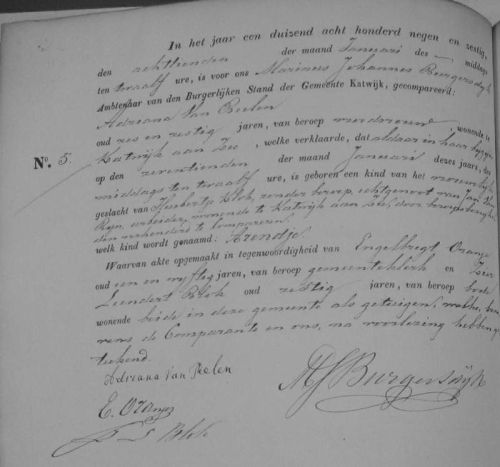 In het jaar een duizend acht honderd negen en zestig,
den achttienden der maand Januari des middags
ten twaalf ure, is voor ons Marinus Johannes Burgersdijk
Ambtenaar van den Burgerlijken Stand der Gemeente Katwijk, gecompareerd:
Adriana van Beelen
oud zes en zestig jaren, van beroep vroedvrouw wonende te
N°. 5. Katwijk aan Zee, welke verklaarde, dat aldaar in haar bijzijn
op den zeventienden der maand Januarij dezes jaars, des
middags ten twaalf ure, is geboren een kind van het vrouwelijk
geslacht van Huibertje Blok, zonder beroep, echtgenoot van Jan van
Rijn, arbeider, wonende te Katwijk aan Zee, door beroepsbezigheden
verhinderd te compareren
welk kind wordt genaamd: Arendje.
Waarvan akte opgemaakt in tegenwoordigheid van Engelbregt Oranje
oud een en vijftig jaren, van beroep gemeenteklerk en
Leendert Blok oud zestig jaren, van beroep bode
wonende beide in deze gemeente als getuigen, welke, bene-
vens de Comparante en ons, na voorlezing hebben ge-
teekend.
Adriana van Beelen
MJ Burgersdijk
E. Oranje
L Blok